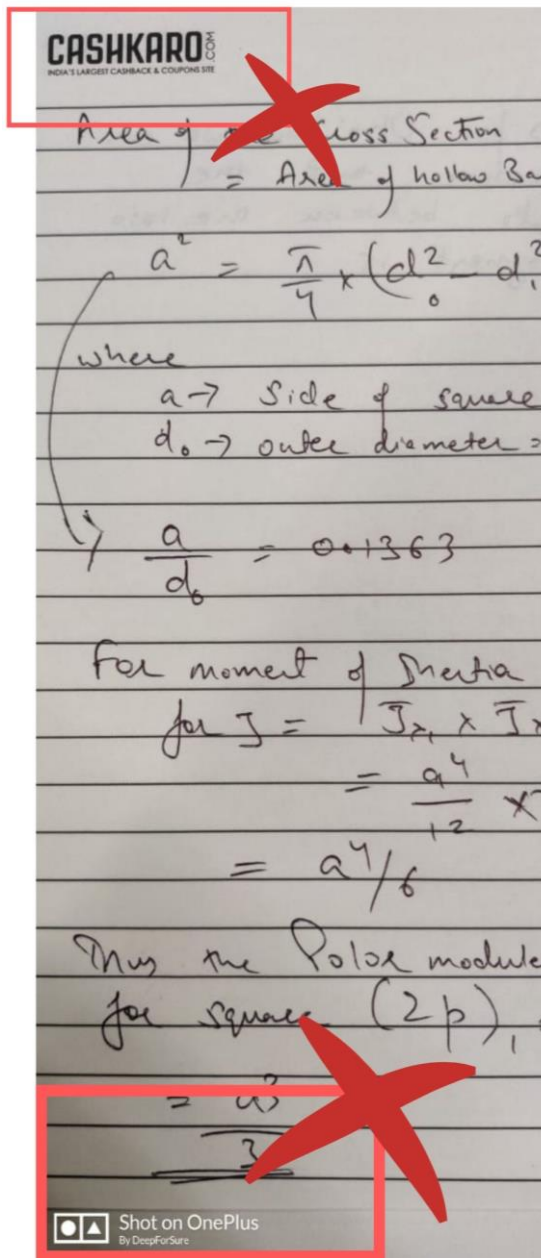 CASHKARO.COM
INDIA'S LARGEST CASHBACK & COUPONS SITE
Area of the Cross Section
= Area of hollow Ba
a² = π/4 × (d₀² - d₁²
where
a → Side of square
d₀ → outer diameter =
a/d₀ = 0.1363
For moment of Inertia
for J = J̅x₁ × J̅x
= a⁴/12 ×
= a⁴/6
Thus the Polar module
for square (2p),
= a³/3
Shot on OnePlus
By DeepForSure